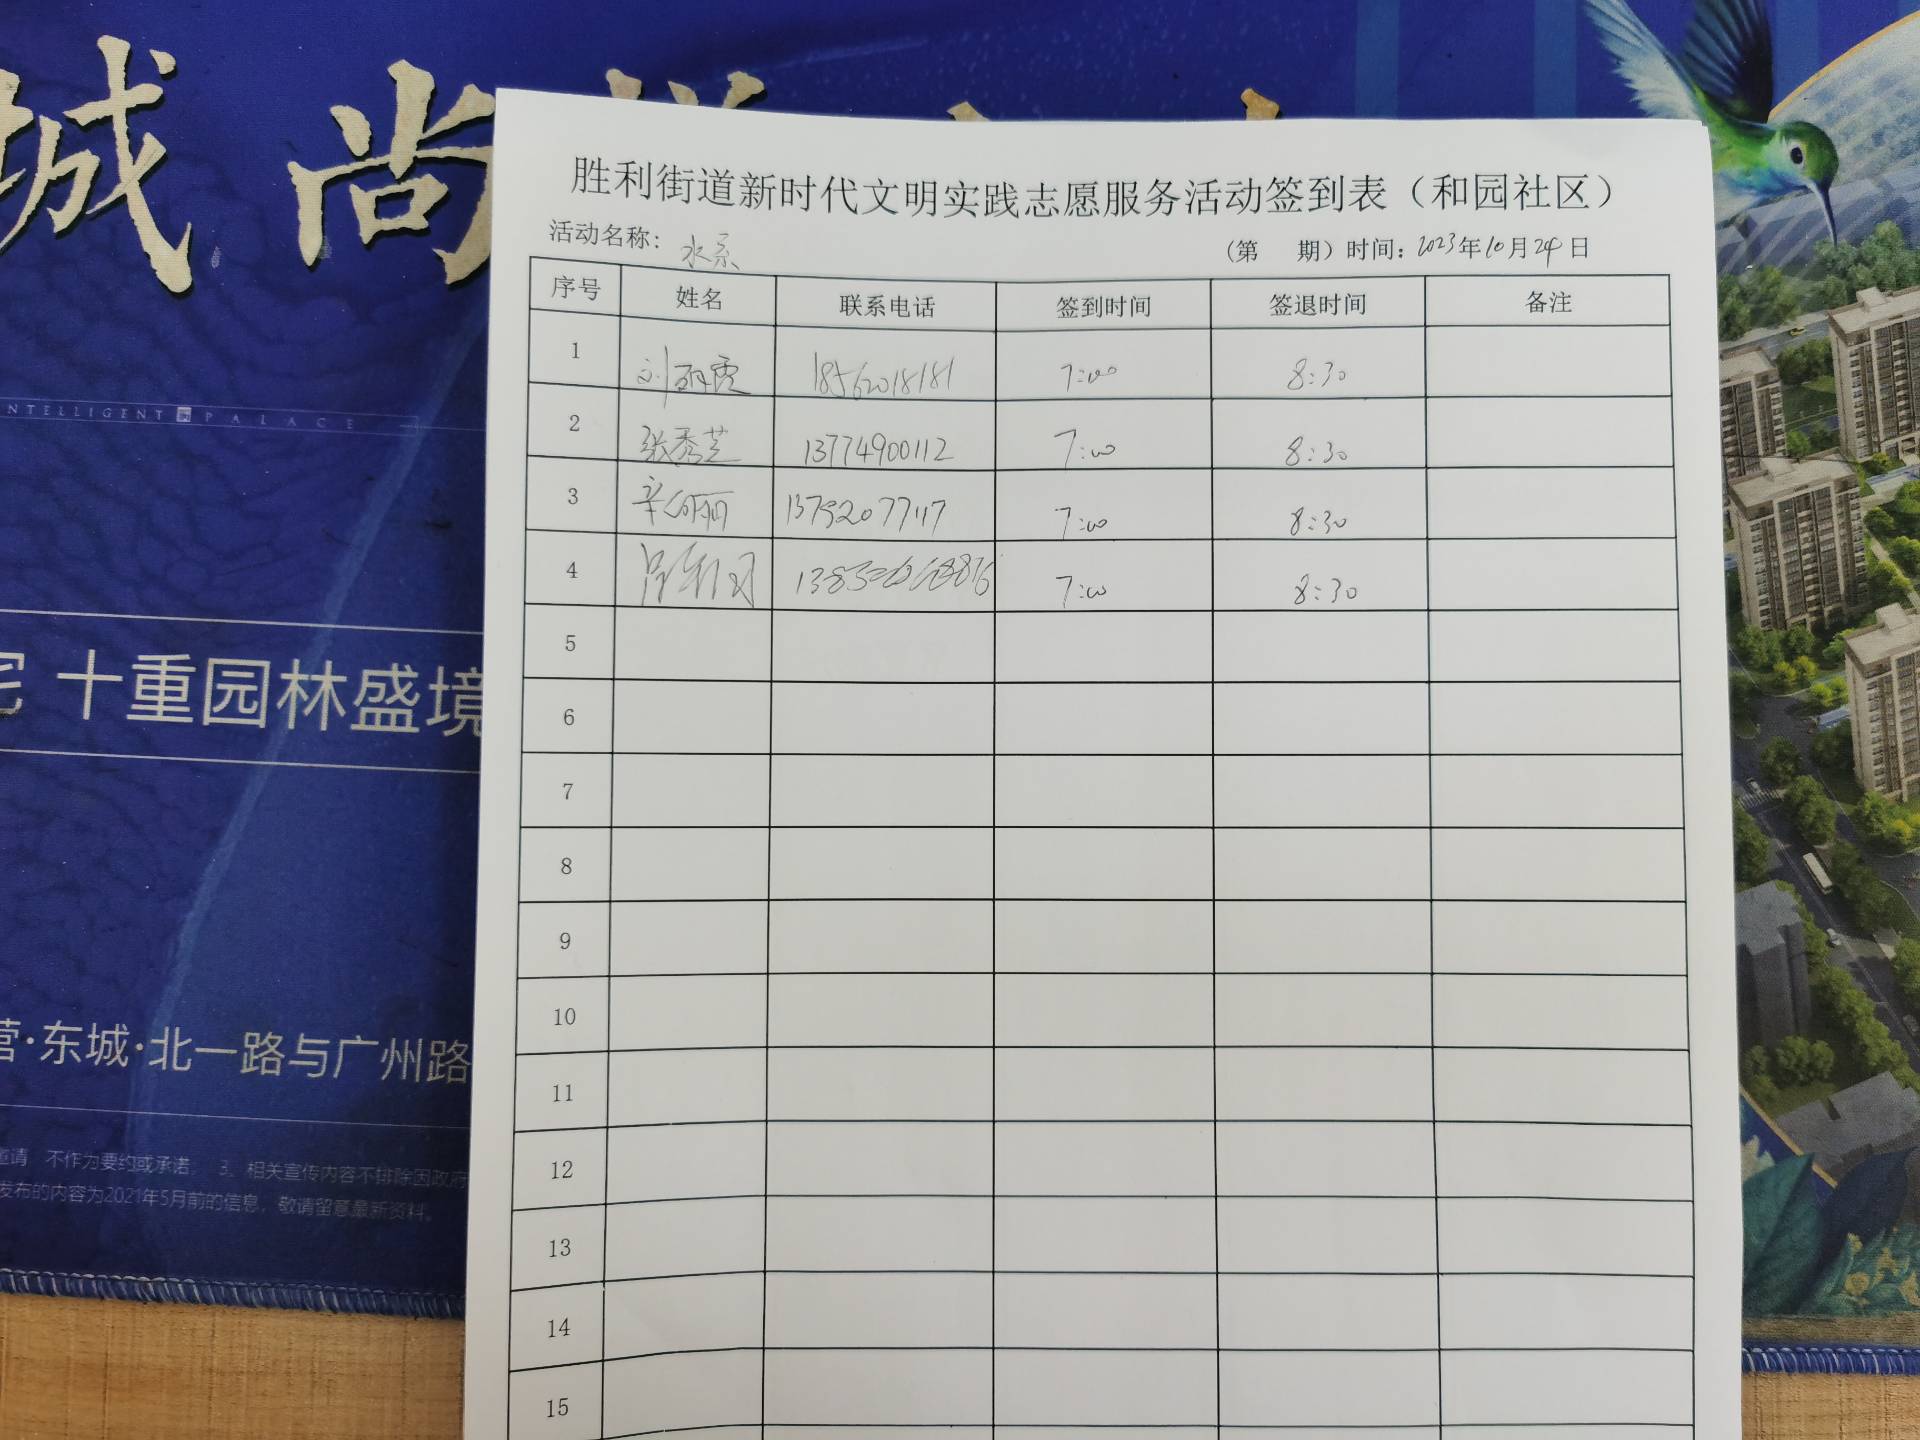 城 尚
INTELLIGENT PALACE
十重园林盛境
营·东城·北一路与广州路
邀请 不作为要约或承诺。 3、相关宣传内容不排除因政府
发布的内容为2021年5月前的信息，敬请留意最新资料。
胜利街道新时代文明实践志愿服务活动签到表（和园社区）
活动名称： 水系 （第 期）时间：2023年10月24日
序号 姓名 联系电话 签到时间 签退时间 备注
1 刘 18562018181 7:00 8:30
2 张秀芝 13774900112 7:00 8:30
3 辛 7:00 8:30
4 7:00 8:30
5
6
7
8
9
10
11
12
13
14
15